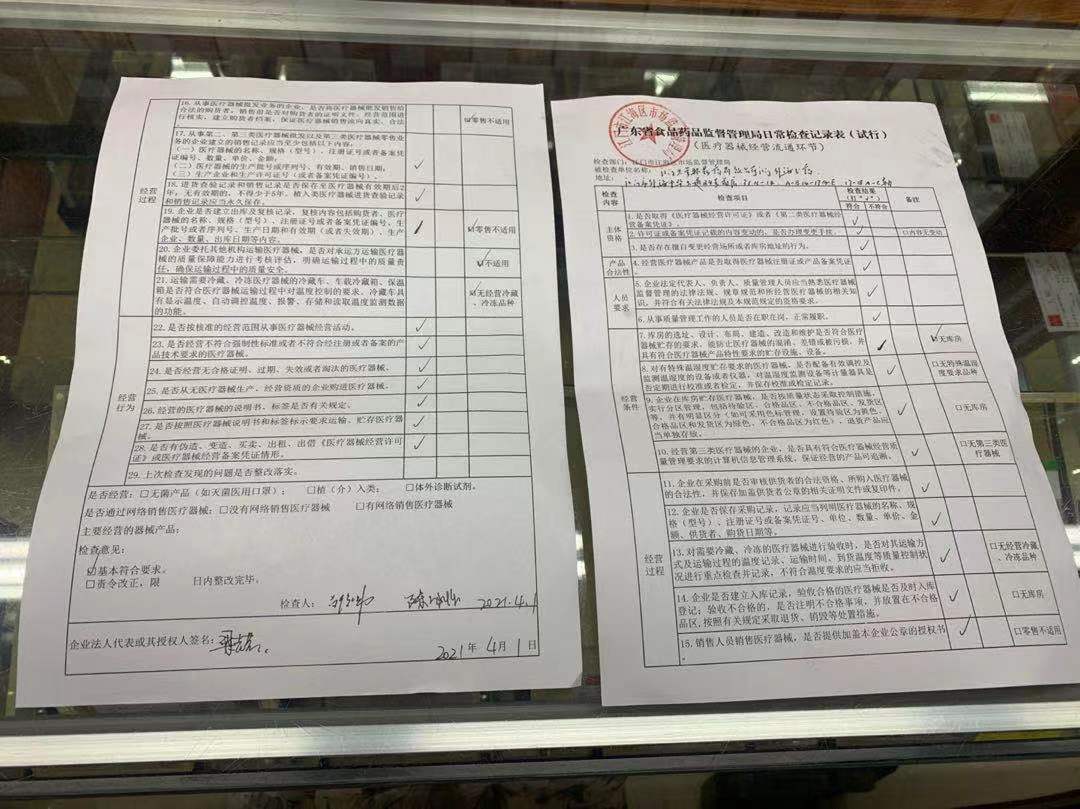 广东省食品药品监督管理局日常检查记录表（试行）
（医疗器械经营流通环节）
检查部门：江门市江海区市场监督管理局
被检查单位名称：
地址：
检查内容
检查项目
检查结果（打“√”）
符合
不符合
备注
主体资格
1.是否取得《医疗器械经营许可证》或者《第二类医疗器械经营备案凭证》。
√
2.许可证或备案凭证记载的内容变动的，是否办理变更手续。
√
□内容无变动
3.是否存在擅自变更经营场所或者库房地址的行为。
√
产品合法性
4.经营医疗器械产品是否取得医疗器械注册证或产品备案凭证。
√
人员要求
5.企业法定代表人、负责人、质量管理人员应当熟悉医疗器械
监督管理的法律法规、规章规范和所经营医疗器械的相关知
识，并符合有关法律法规及本规范规定的资格要求。
√
6.从事质量管理工作的人员是否在职在岗，正常履职。
√
经营条件
7.库房的选址、设计、布局、建造、改造和维护是否符合医疗
器械贮存的要求，能防止医疗器械的混淆、差错或被污损，并
具有符合医疗器械产品特性要求的贮存设施、设备。
☑无库房
8.对有特殊温湿度贮存要求的医疗器械，是否配备有效调控及
监测温湿度的设备或者仪器，对温湿度监测设备等计量器具是
否定期进行校准或者检定，并保存校准或检定记录。
√
□无特殊温湿度要求品种
9.企业在库房贮存医疗器械，是否按质量状态采取控制措施，
实行分区管理，包括待验区、合格品区、不合格品区、发货区
等，并有明显区分（如可采用色标管理，设置待验区为黄色、
合格品区和发货区为绿色、不合格品区为红色），退货产品应
当单独存放。
√
□无库房
10.经营第三类医疗器械的企业，是否具有符合医疗器械经营质
量管理要求的计算机信息管理系统，保证经营的产品可追溯。
√
□无第三类医疗器械
经营过程
11.企业在采购前是否审核供货者的合法资格、所购入医疗器械
的合法性，并保存加盖供货者公章的相关证明文件或复印件。
√
12.企业是否保存采购记录，记录应当列明医疗器械的名称、规
格（型号）、注册证号或者备案凭证号、单位、数量、单价、金
额、供货者、购货日期等。
√
13.对需要冷藏、冷冻的医疗器械进行验收时，是否对其运输方
式及运输过程的温度记录、运输时间、到货温度等质量控制状
况进行重点检查并记录，不符合温度要求的应当拒收。
√
□无经营冷藏、冷冻品种
14.企业是否建立入库记录，验收合格的医疗器械是否及时入库
登记；验收不合格的，是否注明不合格事项，并放置在不合格
品区，按照有关规定采取退货、销毁等处置措施。
√
□无库房
15.销售人员销售医疗器械，是否提供加盖本企业公章的授权书
。
√
□零售不适用
经营过程
16.从事医疗器械批发业务的企业，是否将医疗器械批发销售给
合法的购货者，销售前是否对购货者的证明文件、经营范围进
行核实，建立购货者档案，保证医疗器械销售流向真实、合法
☑零售不适用
17.从事第二、第三类医疗器械批发以及第三类医疗器械零售业
务的企业建立的销售记录应当至少包括以下内容：
（一）医疗器械的名称、规格（型号）、注册证号或者备案凭
证编号、数量、单价、金额；
（二）医疗器械的生产批号或序列号、有效期、销售日期；
（三）生产企业和生产许可证号（或者备案凭证编号）。
√
18.进货查验记录和销售记录是否保存至医疗器械有效期后2
年；无有效期的，不得少于5年。植入类医疗器械进货查验记录
和销售记录应当永久保存。
√
19.企业是否建立出库及复核记录，复核内容包括购货者、医疗
器械的名称、规格（型号）、注册证号或者备案凭证编号、生
产批号或者序列号、生产日期和有效期（或者失效期）、生产
企业、数量、出库日期等内容。
☑零售不适用
20.企业委托其他机构运输医疗器械，是否对承运方运输医疗器
械的质量保障能力进行考核评估，明确运输过程中的质量责
任，确保运输过程中的质量安全。
☑不适用
21.运输需要冷藏、冷冻医疗器械的冷藏车、车载冷藏箱、保温
箱是否符合医疗器械运输过程中对温度控制的要求。冷藏车具
有显示温度、自动调控温度、报警、存储和读取温度监测数据
的功能。
☑无经营冷藏、冷冻品种
经营行为
22.是否按核准的经营范围从事医疗器械经营活动。
√
23.是否经营不符合强制性标准或者不符合经注册或者备案的产
品技术要求的医疗器械。
√
24.是否经营无合格证明、过期、失效或者淘汰的医疗器械。
√
25.是否从无医疗器械生产、经营资质的企业购进医疗器械。
√
26.经营的医疗器械的说明书、标签是否有关规定。
√
27.是否按照医疗器械说明书和标签标示要求运输、贮存医疗器
械。
√
28.是否有伪造、变造、买卖、出租、出借《医疗器械经营许可
证》或医疗器械经营备案凭证情形。
√
29.上次检查发现的问题是否整改落实。
是否经营：□无菌产品（如灭菌医用口罩）；□植（介）入类；□体外诊断试剂。
是否通过网络销售医疗器械：□没有网络销售医疗器械 □有网络销售医疗器械
主要经营的器械产品：
检查意见：
☑基本符合要求。
□责令改正，限 日内整改完毕。
检查人： 2021.4.1
企业法人代表或其授权人签名：
2021年4月1日